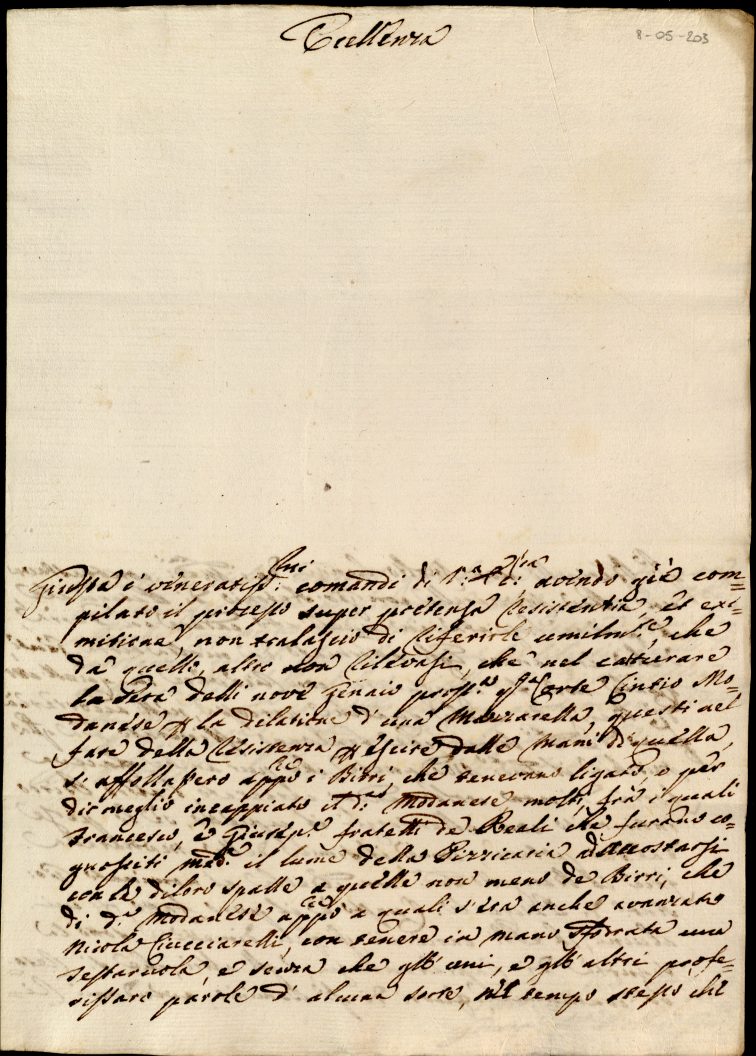 Eccellenza
8-05-203
Giusta i veneratiss:mi comandi di V:a Ecc:za avendo già com=
pilato il processo super pretensa resistentia, et exi=
mitione non tralascio di riferirle umilm:te, che
da quello, altro non rilevasi, che nel catturare
la sera delli nove Genaio pross:o q:a Corte Cintio Mo=
danese p la dilatione d'una Mazzarella, questi nel
fare della resistenza p uscire dalle mani di quella,
si affollassero app:o i Birri, che tenevano ligato, o per
dir meglio incappiato il d:o Modanese molti, frà i quali
Francesco, e Giusep:e fratelli de Reali che furano co=
gnosciti med:e il lume della Pizzicaria
colle di loro spalle a quelle non meno de Birri, che
di d:o Modanese app:o a quali s'era anche avanzato
Nicola Ciucciarelli, con tenere in mano sfodrata una
, e senza che gl'uni, e gl'altri profe=
rissaro parole d'alcuna sorte, nel tempo stesso che